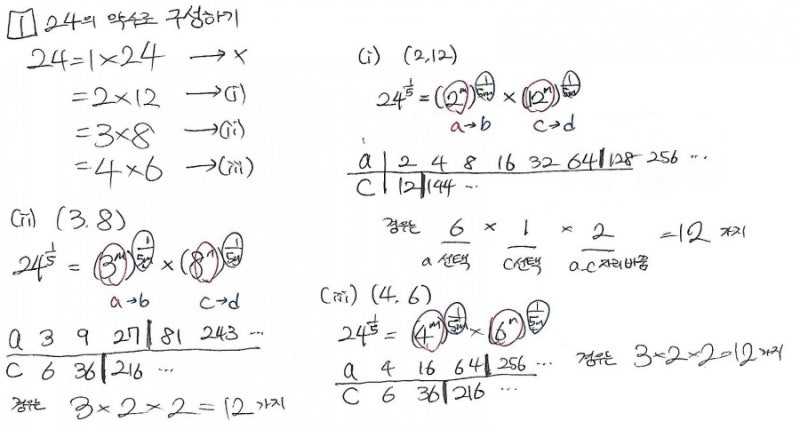 1 24의 약수로 구성하기
24=1×24 → ×
=2×12 → (i)
=3×8 → (ii)
=4×6 → (iii)
(i) (2,12)
24^{1/5} = (2^m)^{1/5m} × (12^n)^{1/5n}
a→b c→d
a | 2 4 8 16 32 64 | 128 256 ...
C | 12 | 144 ...
경우는 6 × 1 × 2 =12 가지
a 선택 C선택 a.c 자리바꿈
(ii) (3.8)
24^{1/5} = (3^m)^{1/5m} × (8^n)^{1/5n}
a→b c→d
a 3 9 27 | 81 243 ...
C 6 36 | 216 ...
경우는 3×2×2=12 가지
(iii) (4.6)
24^{1/5} = (4^m)^{1/5m} × (6^n)^{1/5n}
a 4 16 64 | 256 ...
C 6 36 | 216 ...
경우는 3×2×2=12 가지